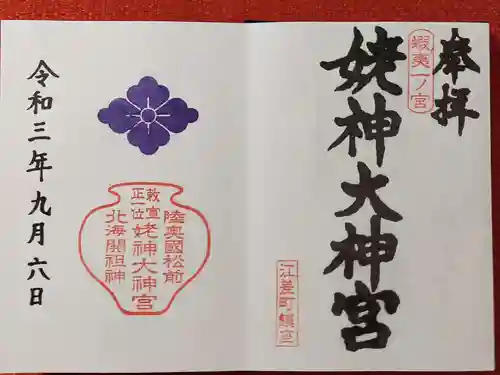 奉拝
蝦夷一ノ宮
姥神大神宮
江差町鎮座
陸奥國松前
勅宣
正一位
姥神大神宮
北海開祖神
令和三年九月六日